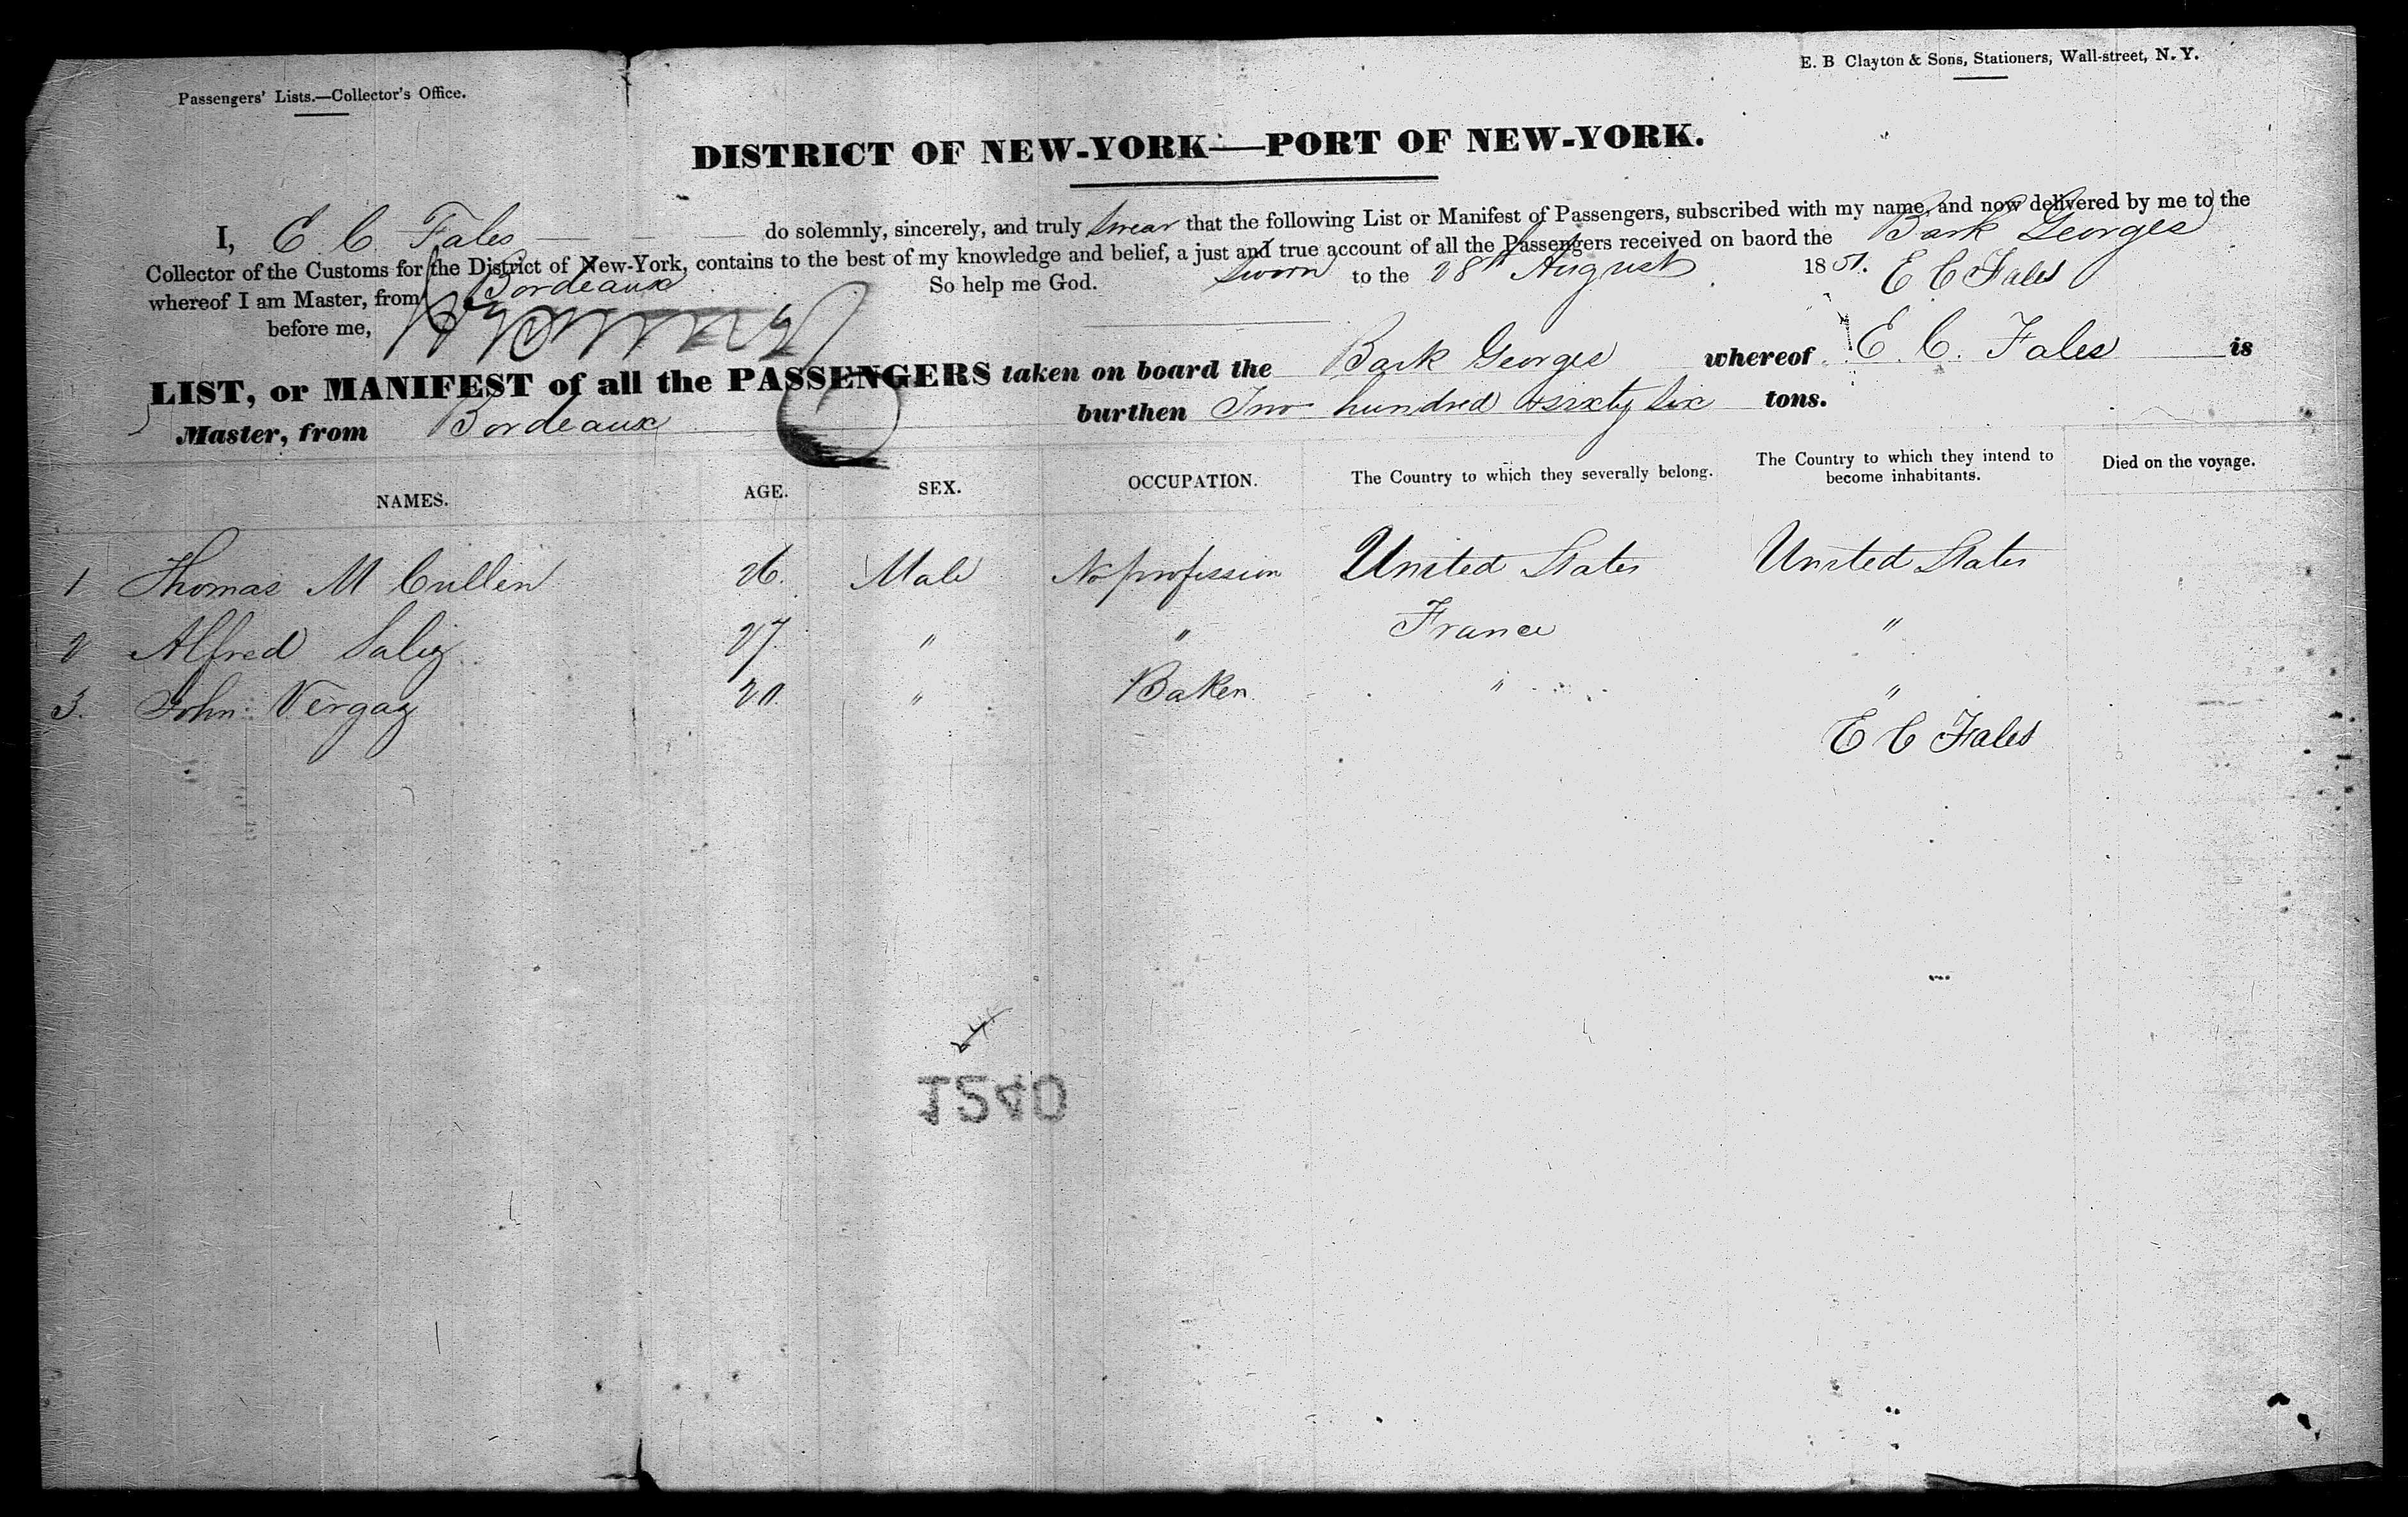 Passengers' Lists.—Collector's Office.
E. B Clayton & Sons, Stationers, Wall-street, N. Y.
DISTRICT OF NEW-YORK—PORT OF NEW-YORK.
I, E C Fales do solemnly, sincerely, and truly swear that the following List or Manifest of Passengers, subscribed with my name, and now delivered by me to the
Collector of the Customs for the District of New-York, contains to the best of my knowledge and belief, a just and true account of all the Passengers received on baord the Bark Georges
whereof I am Master, from Bordeaux So help me God. Sworn to the 28th August 1851. E C Fales
before me,
LIST, or MANIFEST of all the PASSENGERS taken on board the Bark Georges whereof E. C. Fales is
Master, from Bordeaux burthen Two hundred & sixty six tons.
NAMES. AGE. SEX. OCCUPATION. The Country to which they severally belong. The Country to which they intend to become inhabitants. Died on the voyage.
1 Thomas M Cullen 26. Male No profession United States United States
2 Alfred 27. " " France "
3. John Vergay Baker " "
E C Fales
1240